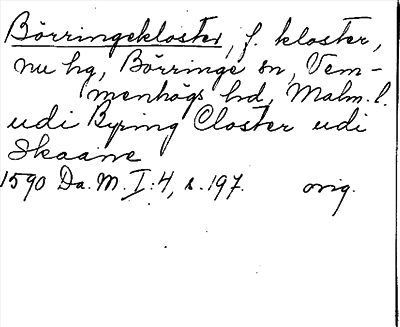 Börringekloster, f. kloster,
nu hg, Börringe sn, Vem-
menhögs hd, Malm. l.
udi Byring Closter udi
Skaane
1590 Da. M. I:4, s. 197. orig.